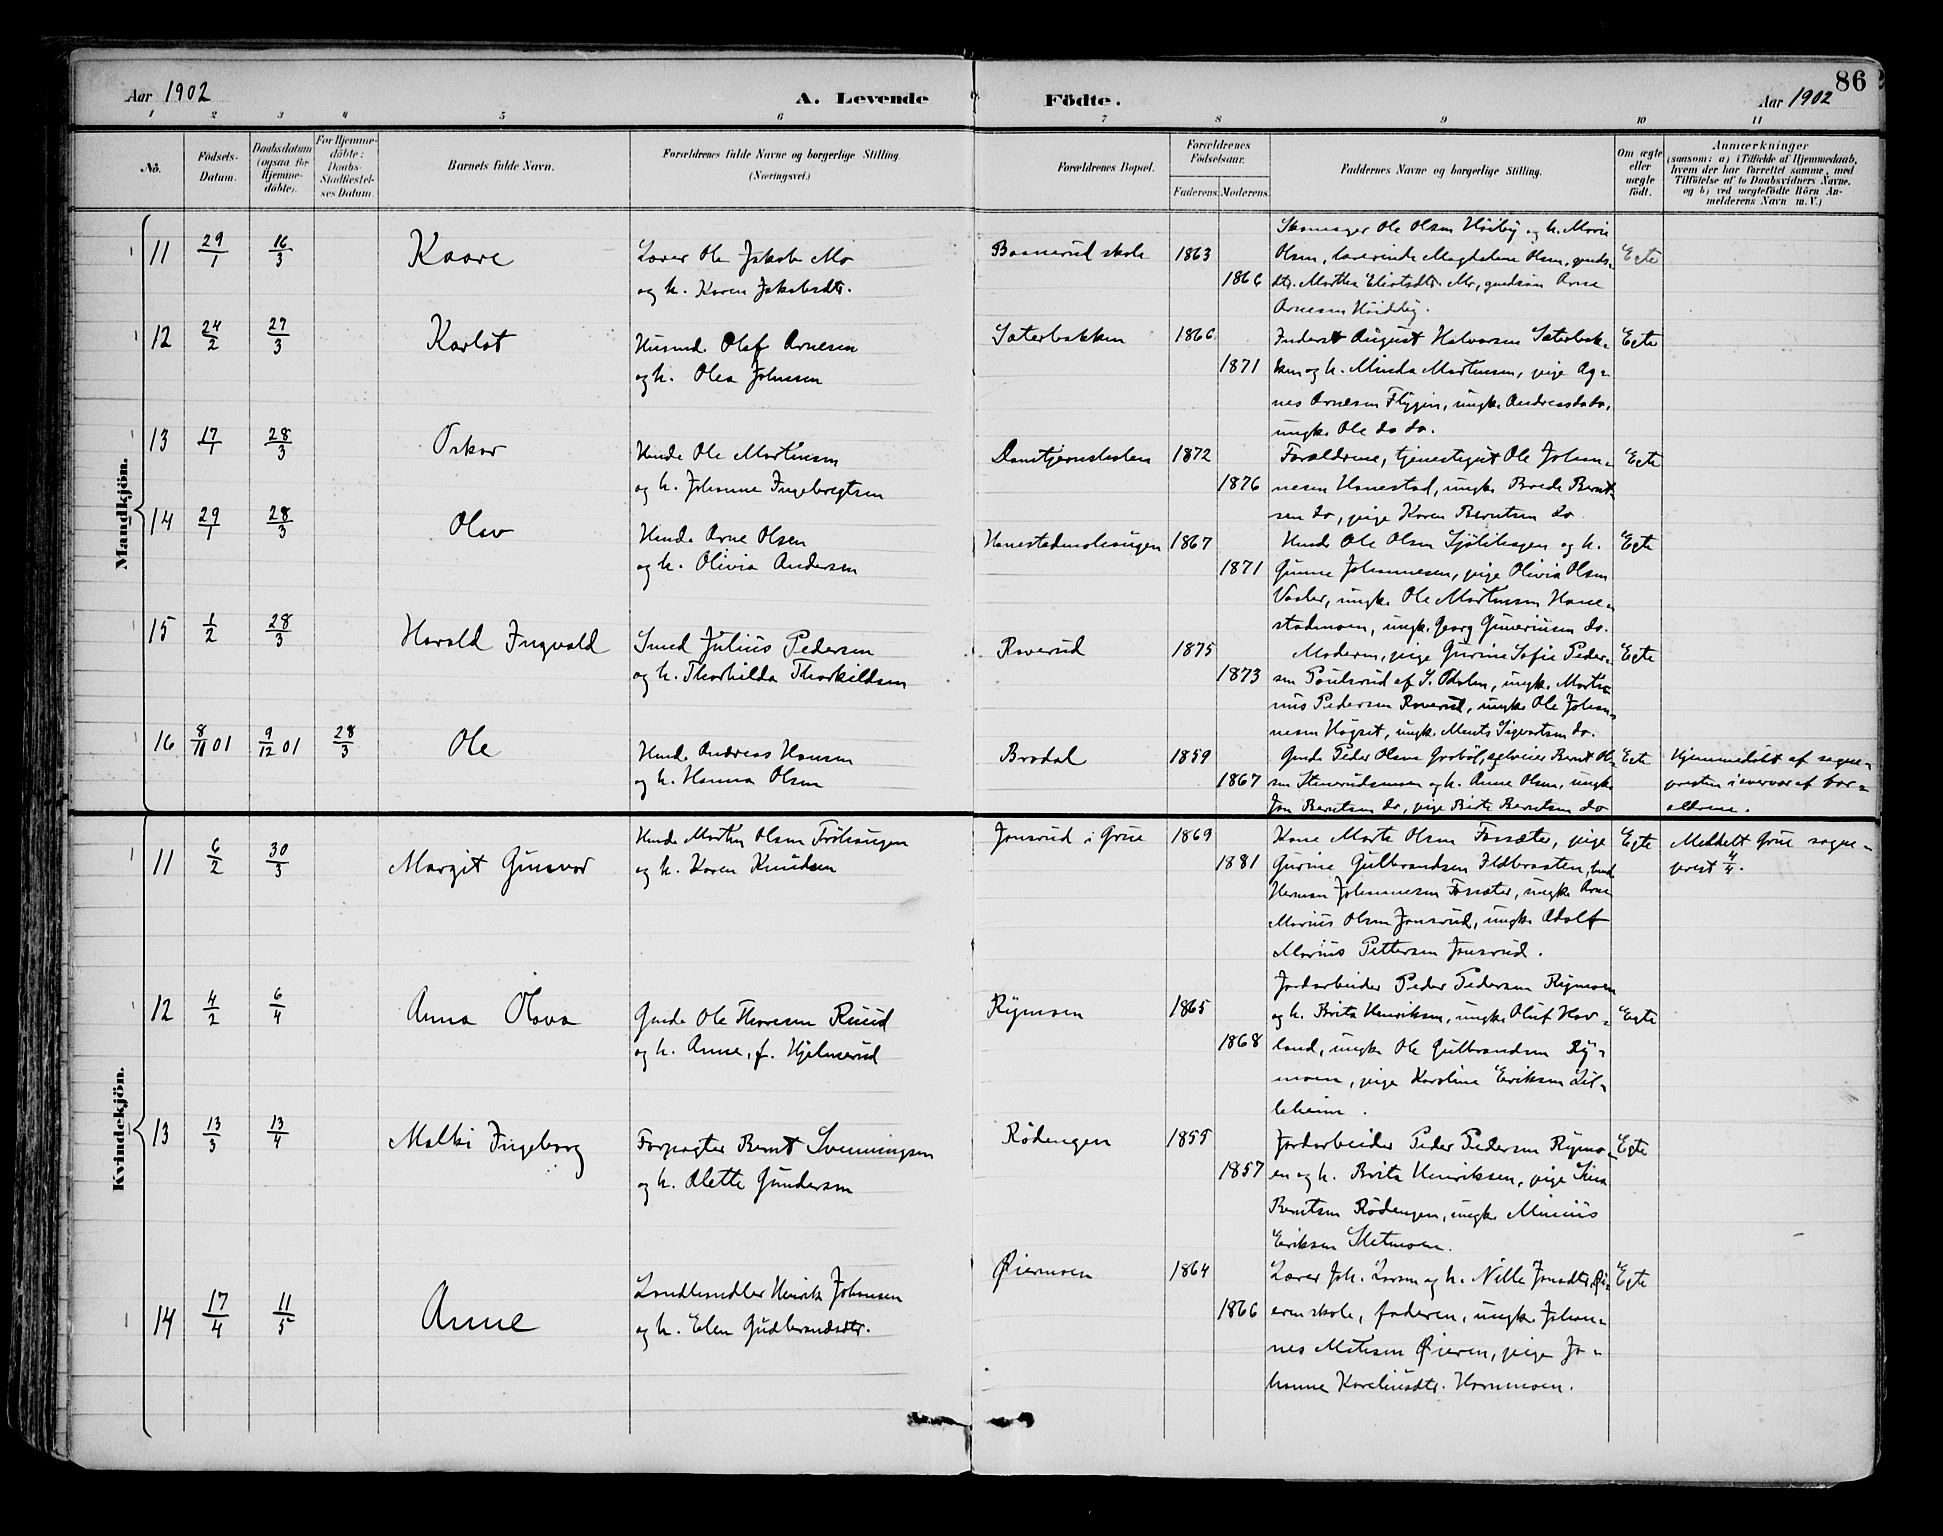 Aar 1902
A. Levende
Födte.
Aar 1902
86
1 2 3 4 5 6 7 8 9 10 11
No.
Födsels-Datum.
Daabsdatum (ogsaa for Hjemme-döbte).
For Hjemme-döbte: Daabs-Stadfæstel-ses Datum.
Barnets fulde Navn.
Forældrenes fulde Navne og borgerlige Stilling.
(Næringsvei.)
Forældrenes Bopæl.
Forældrenes Födselsaar.
Faderens. Moderens.
Faddernes Navne og borgerlige Stilling.
Om ægte eller uægte födt.
Anmærkninger
(saasom: a) i Tilfælde af Hjemmedaab,
hvem der har forrettet samme, med
Tilföielse af to Daabsvidners Navne,
og b) ved uægtefödte Börn An-
melderens Navn m. V.)
Mandkjön.
11 29/1 16/3 Kaare
Lærer Ole Jakobs. Mo
og h. Karen Jakobsdtr.
Baanerud skole 1863
1866
Skomager Ole Olsen Höiby og h. Marie
Olsen, lærerinde Magdalene Olsen, gaards-
dtr. Marthea Mo, gaardsøn Arne
Arnesen Höiby.
Egte
12 24/2 27/3 Karlot
Husmd. Olaf Arnesen
og h. Olea Johnsen
Sæterbakken 1866
1871
Inderst August Halvorsen Sæterbak-
ken og h. Minda Martinsen, pige Ag-
nes Arnesen Flygin, ungk. Andreas do do,
ungk. Ole do do.
Egte
13 17/1 28/3 Oskar
Husmd. Ole Martinsen
og h. Johanne Ingebregtsen
Damtjernsholen 1872
1876
Forældrene, tjenestegut Ole Johan-
nesen Hanestad, ungk. Brede Bernt-
sen do, pige Karen Berntsen do
Egte
14 29/1 28/3 Olav
Husmd. Arne Olsen
og h. Olivia Andersen
Hanestadmohaugen 1867
1871
Husmd. Ole Olsen Sjölihagen og h.
Gunne Johannesen, pige Olivia Olsen
Vaaler, ungk. Ole Martinsen Hane-
stadmoen, ungk. Georg Guneriusen do.
Egte
15 1/2 28/3 Harald Ingvald
Smed Julius Pedersen
og h. Thorhilda Thorkildsen
Roverud 1875
1873
Moderen, pige Gurine Sofie Peder-
sen Paulsrud af S. Odalen, ungk. Marti-
nius Pedersen Roverud, ungk. Ole Johan-
nesen Hogset, ungk. Sigvartsen do.
Egte
16 8/11 01 9/12 01 28/3 Ole
Husmd. Andreas Hansen
og h. Hanna Olsen
Brodal 1859
1867
Gmd. Peder Olsen Grøböl, selveier Bernt Ol-
sen Stenerudsmoen og h. Anne Olsen, ungk.
Jon Berntsen do, pige Birte Berntsen do
Egte
Hjemmedöbt af sogne-
presten i nærvær af for-
ældrene.
Kvindekjön.
11 6/2 30/3 Margit Gunvor
Husmd. Martin Olsen Tröhaugen
og h. Karen Knudsen
Jonsrud i Grue 1869
1881
Kone Marte Olsen Forsæter, pige
Gurine Gulbrandsen Ildbraaten, husmd.
Herman Johannesen Forsæter, ungk. Arne
Marius Olsen Jonsrud, ungk. Adolf
Marius Pettersen Jonsrud.
Egte
Meddelt Grue sogne-
prest 4/4.
12 4/2 6/4 Anna Olava
Gmd. Ole Thoresen Ruud
og h. Anne, f. Hjelmerud
Rymoen 1865
1868
Jordarbeider Peder Pedersen Rymoen
og h. Brita Henriksen, ungk. Oluf Hov-
land, ungk. Ole Gulbrandsen Ry-
moen, pige Karoline Eriksen Lil-
leheim.
Egte
13 13/3 13/4 Malki Ingeborg
Forpagter Bernt Svenningsen
og h. Olette Gundersen
Rödengen 1855
1857
Jordarbeider Peder Pedersen Rymo-
en og h. Brita Henriksen, pige Lina
Berntsen Rödengen, ungk. Minius
Eriksen Sletmoen.
Egte
14 17/4 11/5 Anne
Landhandler Henrik Johansen
og h. Elen Gudbrandsdtr.
Öiermoen 1864
1866
Lærer Joh. Larsen og h. Nille Jonsdtr, Öi-
eren skole, faderen, ungk. Johan-
nes Matisen Öieren, pige Jo-
hanne Kareliusdtr. Hornmoen.
Egte